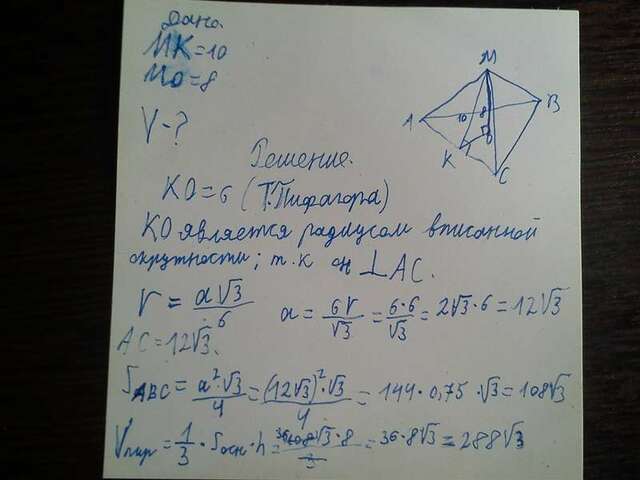 Дано.
MK=10
MO=8
V-?
M
A
B
10
8
K
O
C
Решение.
KO=6 (Т.Пифагора)
KO является радиусом вписанной
окружности; т.к он ⊥AC.
r = a√3/6 a = 6r/√3 = 6·6/√3 = 2√3·6 = 12√3
AC=12√3.
S_ABC = a²·√3/4 = (12√3)²·√3/4 = 144·0,75·√3 = 108√3
V_пир = 1/3·S_осн·h = 36 108√3·8/3 = 36·8√3 = 288√3